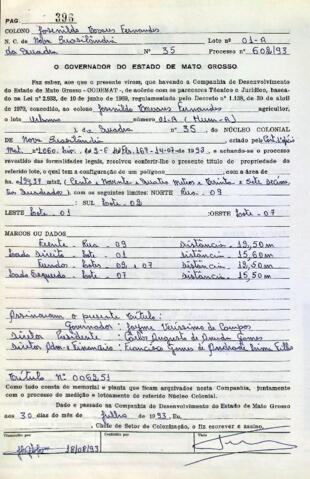 PAG. 396
COLONO Josenildo Fernandes
N. C. de Nova Brasilândia Lote nº 01-A
da Quadra Nº 35 Processo nº 608/93
O GOVERNADOR DO ESTADO DE MATO GROSSO
Faz saber, aos que o presente virem, que havendo a Companhia de Desenvolvimento
do Estado de Mato Grosso - CODEMAT -, de acôrdo com os pareceres Técnico e Jurídico, basea-
da na Lei nº 2.933, de 10 de junho de 1969, regulamentado pelo Decreto nº 1.138, de 30 de abril
de 1970, concedido, ao colono Josenildo Fernandes agricultor,
o lote Urbano número 01-A (Hum-A)
da Quadra nº 35 do NÚCLEO COLONIAL
DE Nova Brasilândia criado pela
1993, e achando-se o processo
revestido das formalidades legais, resolveu conferir-lhe o presente título de propriedade do
referido lote, o qual tem a configuração de um polígono com a área de
com os seguintes limites: NORTE Rua - 09
SUL lote - 02
LESTE lote - 01 OESTE lote - 07
MARCOS OU DADOS
Frente - Rua - 09 distância - 12,50m
Lado Direito - lote 01 distância - 15,60m
Fundos - lotes - 02 e 07 distância - 12,50m
Lado Esquerdo - lote - 07 distância - 15,50m
Assinaram o presente título:
Governador: Jayme Verissimo de Campos
Diretor Presidente:
Diretor Adm. e Financeiro: Francisco Gomes de Andrade Lima Filho
Título Nº 006251
Como tudo consta do memorial e planta que ficam arquivados nesta Companhia, juntamente
com o processo de medição e loteamento do referido Núcleo Colonial.
Dado e passado na Companhia de Desenvolvimento do Estado de Mato Grosso
aos 30 dias do mês de Julho de 1993, Eu
, Chefe de Setor de Colonização, o fiz escrever e assino.
18/08/93